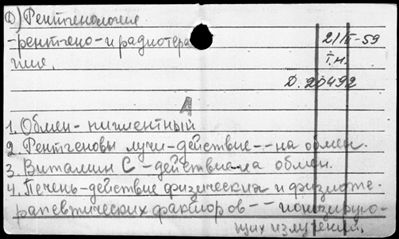 Ф) Рентгенология
-рентгено- и радиотера
пия.
21/II-59
т.н.
Д. 20492
А
1. Обмен- пигментный
2. Рентгеновы лучи-действие- -на обмен.
3. Витамин С -действие на обмен.
4. Печень-действие физических и физиоте-
рапевтических факторов- - ионизирую-
щих излучений.